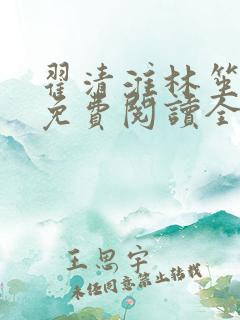 翟清淮林笙
免費閱讀全
王思宇
未经同意禁止转载